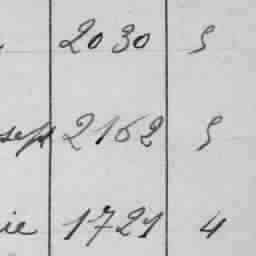 2030 5
seph 2162 5
ie 1721 4